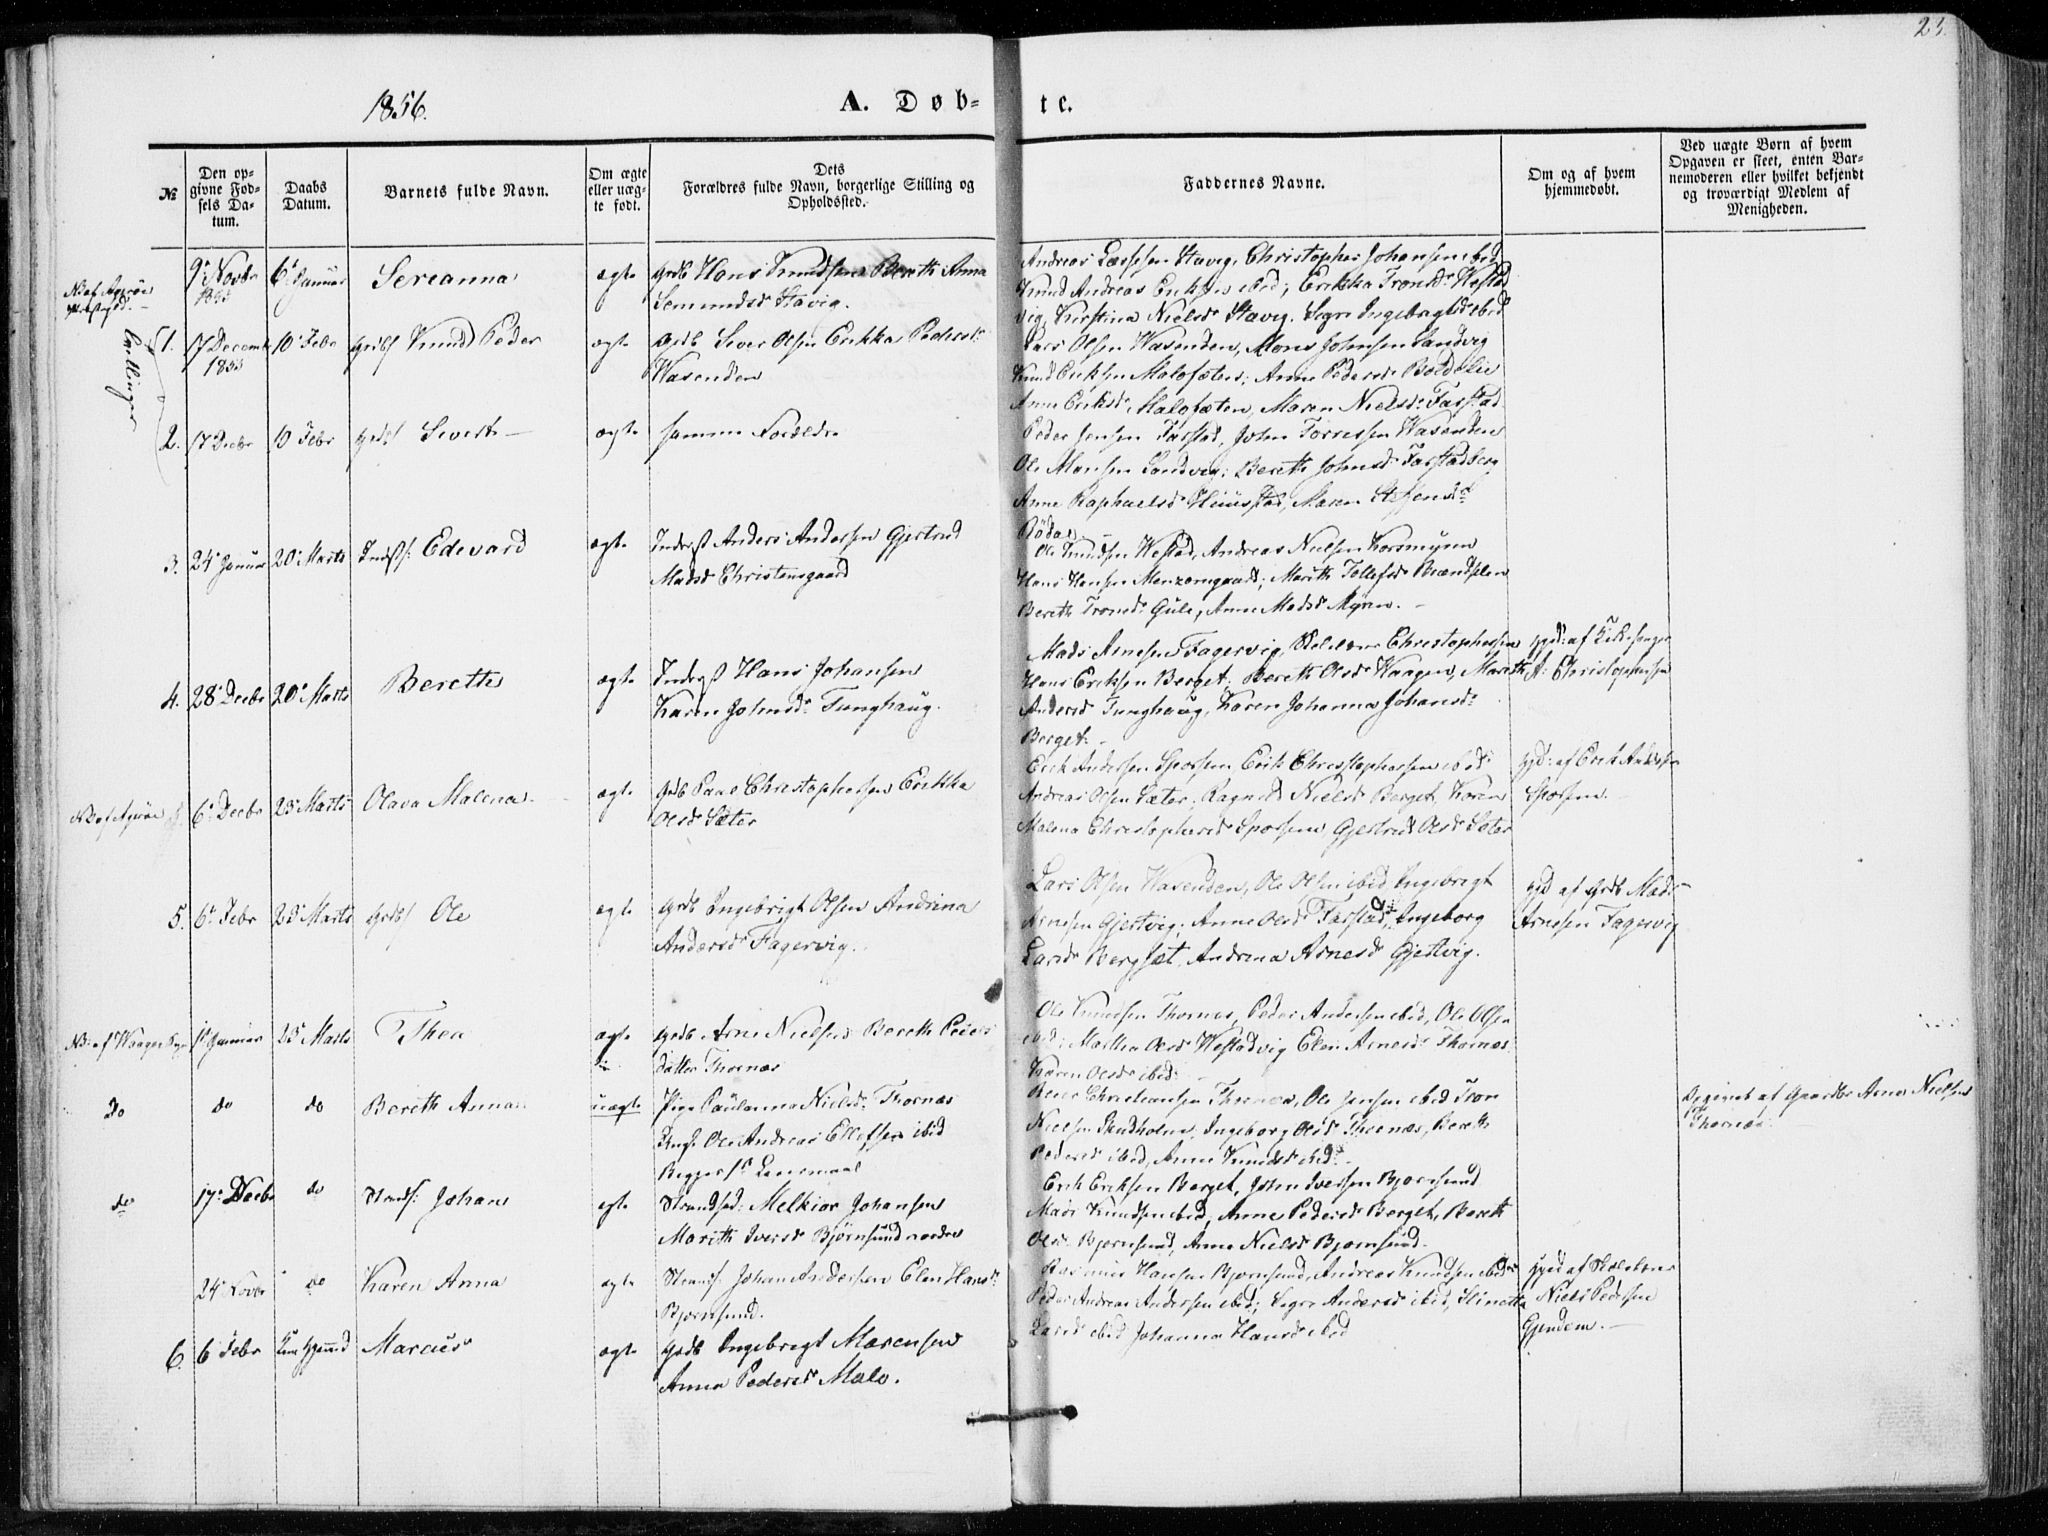 23.
1856.
A. Døb-
te.
№
Den op-
givne Fød-
sels Da-
tum.
Daabs
Datum.
Barnets fulde Navn.
Om ægte
eller uæg-
te født.
Dets
Forældres fulde Navn, borgerlige Stilling og
Opholdssted.
Faddernes Navne.
Om og af hvem
hjemmedøbt.
Ved uægte Børn af hvem
Opgaven er skeet, enten Bar-
nemoderen eller hvilket bekjendt
og troværdigt Medlem af
Menigheden.
9de Novbr 6te Januar Sereanna ægte Grdb Hans Knudsen Bereth Anna
1855
Semundsd Stavig.
Andreas Lassesen Stavig, Christopher Johansen ibid
Knud Andreas Eriksen ibid; Erikka Tronds Westad
vig, Kirstina Nielsd Stavig.
Tvillinger
1. 17 Decemb 10 Febr Knud Peder ægte Grdb Siver Olsen Erikka Pedersd
1855
Wasenden
Lars Olsen Wasenden, Mons Johnsen Sandvig
Knud Eriksen Malosæter; Anne Pedersd
Anne Eriksd Malosæter, Maren Nielsd Farstad
2. 17 Decbr 10 Febr Sivert ægte samme Forældre
Peder Jensen Farstad, John Torressen Wasenden
Ole Monsen Sandvig; Bereth Johnsd Farstadberg
Anne Raphaelsd Hüüstad, Maren Steffensd
Rødal
3. 24 Januar 20 Marts Edevard ægte Inderst Anders Andersen Gjertrud
Madsd Christensgaard
Ole Knudsen Westad, Andreas Nielsen Korsmyren
Hans Hansen; Marith Tollefsd
Bereth Tronsd Gule, Anne Madsd Myren.
4. 28 Decbr 20 Marts Bereth ægte Inderst Hans Johansen
Karen Johnsd Tunghaug.
Mads Arnesen Fagervig, Christophersen
Hans Eriksen Berget; Bereth Olsd Haagen, Marith
Andersd Tunghaug, Karen Johanna Johansd
Berget.
hjd: af Kirkesanger
A: Christophersen
6 Decbr 23 Marts Olava Malena ægte Grdb Paul Christophersen Erikka
Olsd Sæter
Erik Andersen Sporsem, Erik Christophersen ibid
Andreas Olsen Sæter; Ragnild Nielsd Berget, Karen
Malena Christophersd Sporsem, Gjertrud Olsd Sæter
hjd: af Erik Andersen
Sporsem.
5. 6 Febr 23 Marts Ole ægte Grdb Ingebrigt Olsen Andrina
Andersd Fagervig.
Lars Olsen Wasenden, Ole Olsen ibid, Ingebregt
Arnesen Gjestvig; Anne Olsd Farstad, Ingeborg
Larsd Bergset, Andrina Arnesd Gjestvig.
hjd af Grdb Mads
Arnesen Fagervig
1 Januar 23 Marts Thea ægte Grdb Arne Nielsen Bereth Peders
datter Thornæs
Ole Knudsen Thornæs, Peder Andersen ibid, Ole Olsen
ibid; Martha Olsd Westadvig Elen Arnesd Thornæs
Karen Olsd ibid
do do do Bereth Anna uægte Pige Paulanna Nielsd Thornæs
Ungk Ole Andreas Ellefsen ibid
Begges 1ste Leiermaal
Christiansen Thornæs, Ole Jensen ibid Tron
Nielsen, Ingeborg Olsd Thornæs, Bereth
Pedersd ibid, Anne Knudsd ibid
Opgivet af Gaardbr Arne Nielsen
Thornæs
do 17 Decbr do Johan ægte Strandsid: Melkior Johansen
Marith Iversd Bjørnsund nordre
Erik Eriksen Berget, John Iversen Bjørnsund
Mads Knudsen ibid, Anne Pedersd Berget, Bereth
Olsd Bjørnsund, Anne Nielsd Bjørnsund
24 Novbr do Karen Anna ægte Strands: Johan Andersen Elen Hansd
Bjørnsund.
Rasmus Hansen Bjørnsund, Andreas Knudsen ibid
Peder Andreas Andersen ibid; Andersd ibid,
Larsd ibid Johanna Hansd ibid
hjd af Skoleholder
Niels Pedersen
Gjendem.
6. 6 Febr Marcus ægte Grdb Ingebregt Morensen
Anna Pedersd Malo.